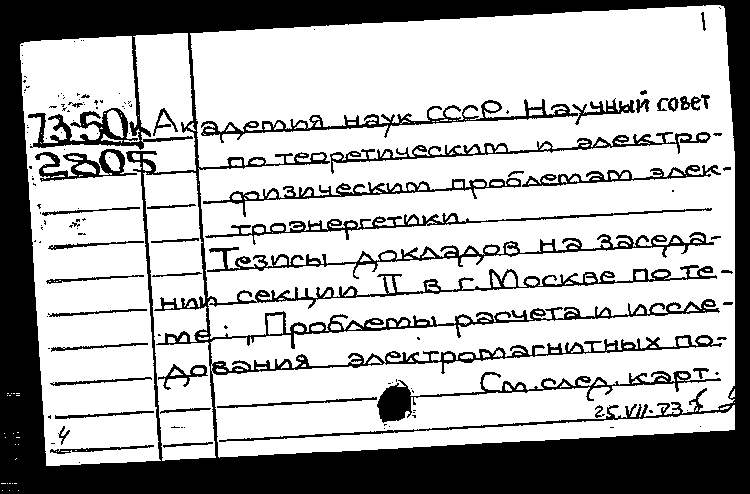 1
73-50к Академия наук СССР. Научный совет
2805 по теоретическим и электро-
физическим проблемам элек-
троэнергетики.
Тезисы докладов на заседа-
нии секции II в г. Москве по те-
ме: „Проблемы расчета и иссле-
дования электромагнитных по-
См. след. карт.
25.VII-73
4